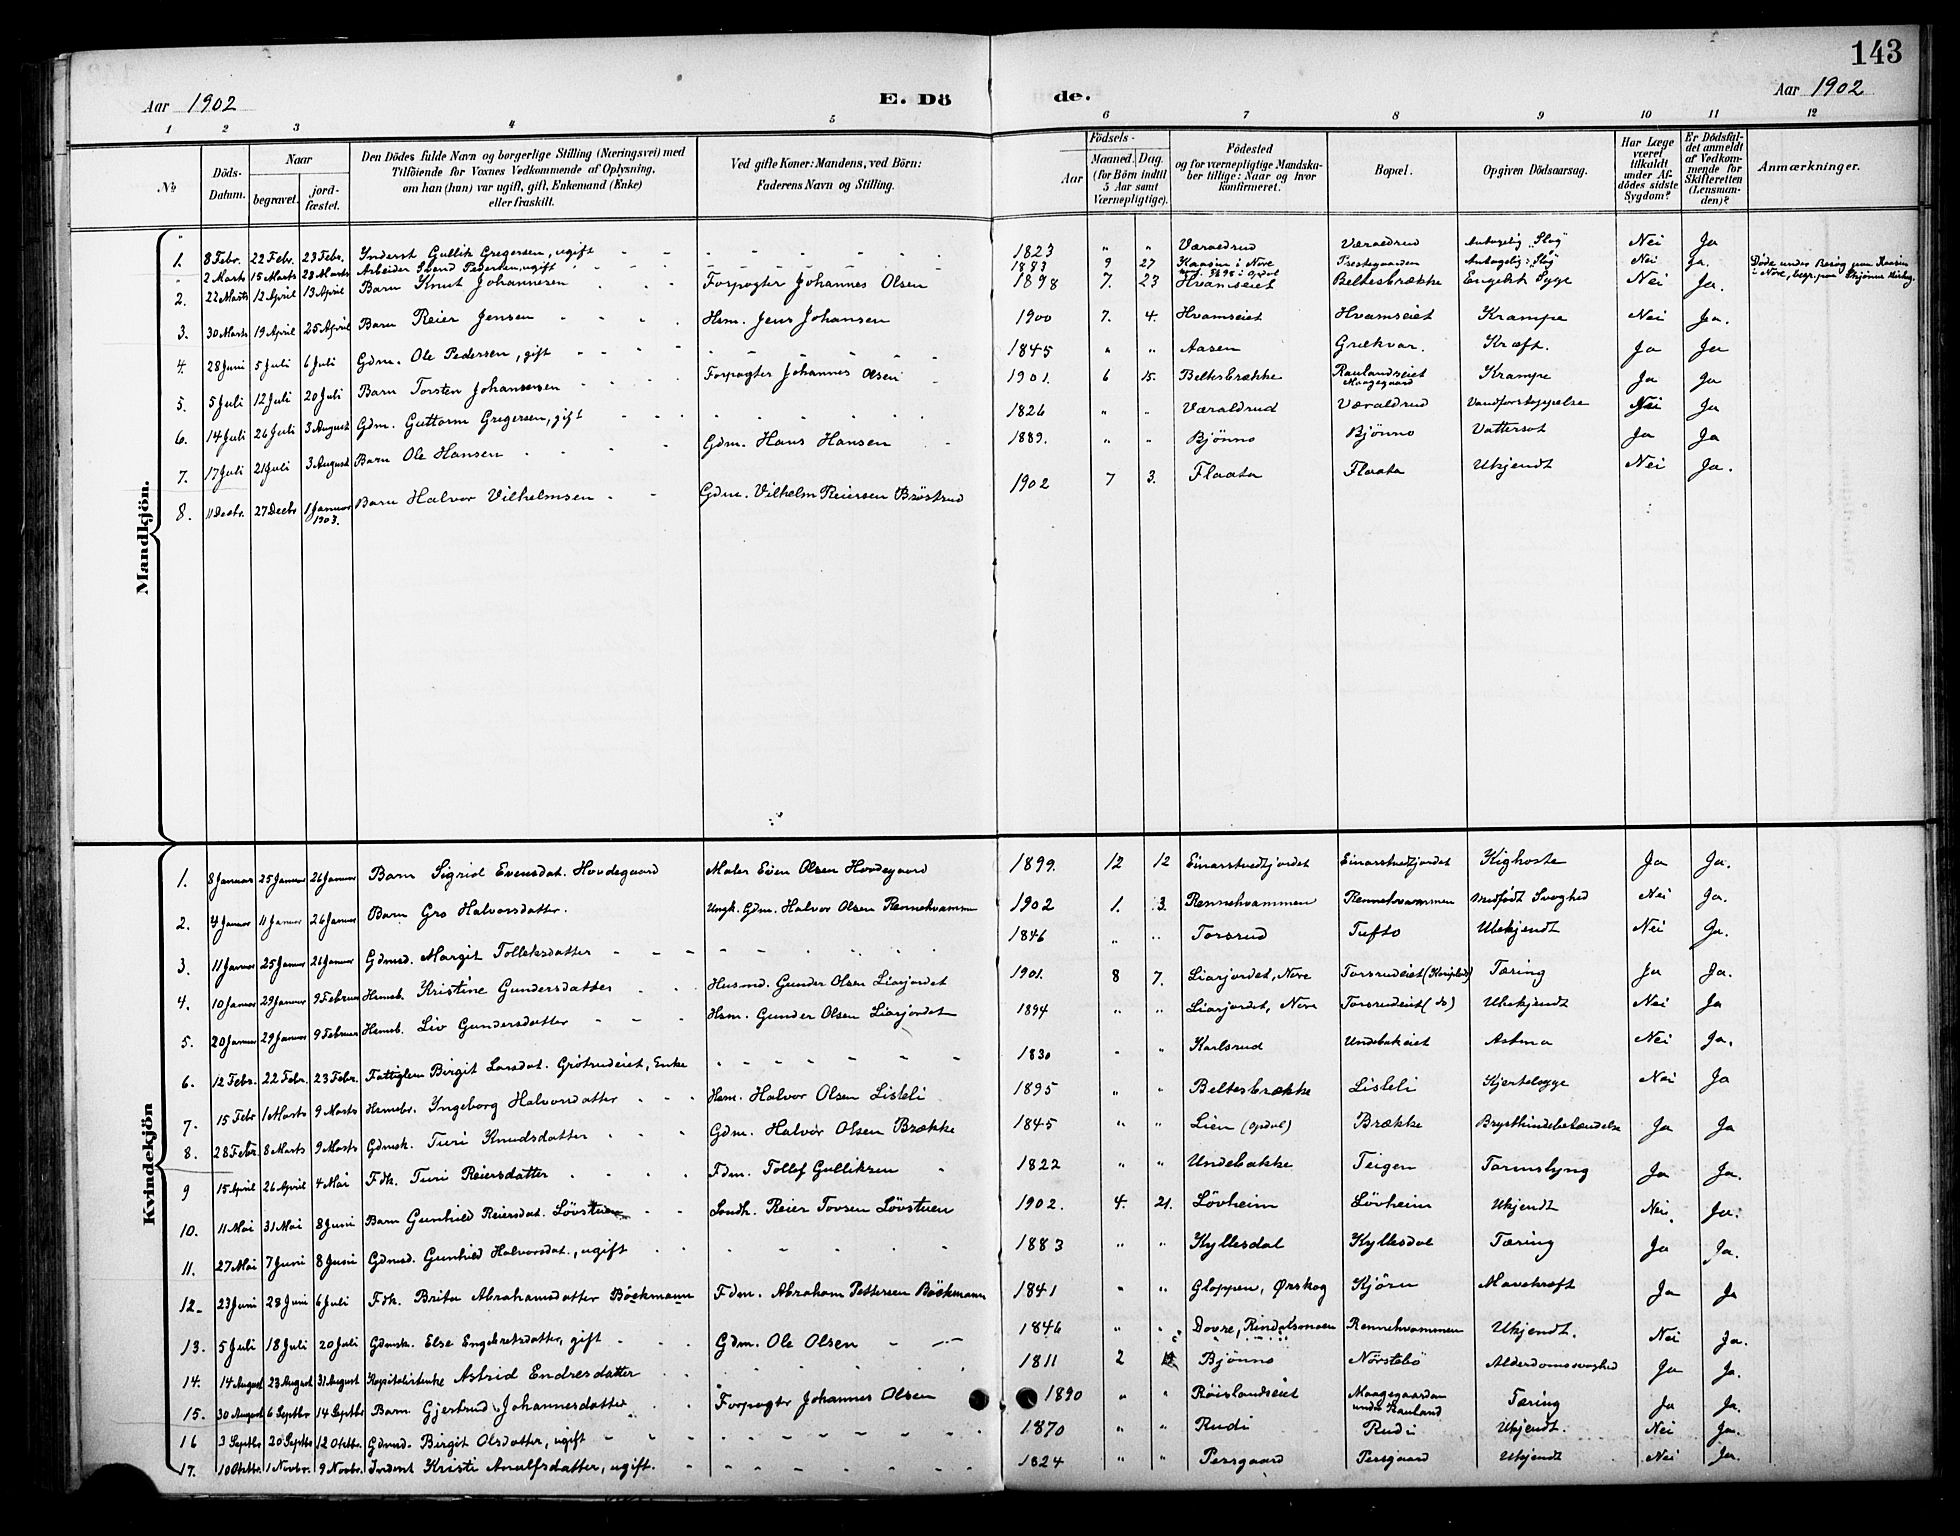 143
Aar 1902 E. Dö de. Aar 1902
1 2 3 4 5 6 7 8 9 10 11 12
No
Döds-Datum.
Naar
begravet. jord-fæstet.
Den Dödes fulde Navn og borgerlige Stilling (Næringsvei) med
Tilföiende for Voxnes Vedkommende af Oplysning,
om han (hun) var ugift, gift, Enkemand (Enke)
eller fraskilt.
Ved gifte Koner: Mandens, ved Börn:
Faderens Navn og Stilling.
Födsels-
Aar
Maaned. Dag.
(for Börn indtil
5 Aar samt
Værnepligtige).
Födested
og for værnepligtige Mandska-
ber tillige: Naar og hvor
konfirmeret.
Bopæl.
Opgiven Dödsaarsag.
Har Læge
været
tilkaldt
under Af-
dödes sidste
Sygdom?
Er Dödsfal-
det anmeldt
af Vedkom-
mende for
Skifteretten
(Lensman-
den)?
Anmærkninger.
Mandkjön.
1. 8 Febr. 22 Febr. 23 Febr. Inderst Gullik Gregersen, ugift 1823 " " Væraldrud Væraldrud Antagelig "Slag" Nei Ja
" 2 Marts 15 Marts 23 Marts Arbeider Svend Pedersen, ugift 1883 9 27 Kaasin i Nore Prestegaarden Antagelig: "Slag" Nei Ja. Døde under Besøg paa
i Nore, begr. paa Skjønne Kirkeg.
2. 22 Marts 12 April 13 April Barn Knut Johannesen Forpagter Johannes Olsen 1898 7. 23 Hvamseiet Beltesbrække Engelsk Syge Nei Ja.
3. 30 Marts 19 April 25 April Barn Reier Jensen Hsm. Jens Johansen 1900 7. 4. Hvamseiet Hvamseiet Krampe Nei Ja.
4. 28 Juni 5 Juli 6 Juli Gdm. Ole Pedersen, gift 1845 " " Aasen Grækvar. Kræft. Ja Ja
5. 5 Juli 12 Juli 20 Juli Barn Torsten Johannesen Forpagter Johannes Olsen 1901. 6 15. Beltesbrække Raulandseiet
Maagegaard Krampe Ja Ja
6. 14 Juli 26 Juli 3 August Gdm. Guttorm Gregersen, gift 1826 " " Væraldrud Væraldrud Vandforstoppelse Nei Ja
7. 17 Juli 21 Juli 3 August Barn Ole Hansen Gdm. Hans Hansen 1889. " " Bjønno Bjønno Vattersot Ja Ja
8. 11 Decbr. 27 Decbr 1 Januar
1903. Barn Halvor Vilhelmsen Gdm. Vilhelm Reiersen Brøstrud 1902 7 3. Flaata Flaata Ukjendt Nei Ja.
Kvindekjön
1. 8 Januar 25 Januar 26 Januar Barn Sigrid Evensdat. Hovdegaard Maler Even Olsen Hovdegaard 1899. 12 12 Einarstvedtjordet Einarstvedtjordet Kighoste Ja Ja.
2. 4 Januar 11 Januar 26 Januar Barn Gro Halvorsdatter. Ungk. Gdm. Halvor Olsen Rennehvammen 1902 1. 3. Rennehvammen Rennehvammen Medfødt Svaghed Nei Ja.
3. 11 Januar 25 Januar 26 Januar Gdmsd. Margit Tolleksdatter 1846 " " Torsrud Tufto Ubekjendt Nei Ja.
4. 10 Januar 29 Januar 9 Februar Hsmsb. Kristine Gundersdatter Husmd. Gunder Olsen Liarjordet 1901. 8 7. Liarjordet, Nore Torsrudeiet Tæring Ja Ja.
5. 20 Januar 29 Januar 9 Februar Hsmsb. Liv Gundersdatter Hsm. Gunder Olsen Liarjordet 1894 " " Liarjordet, Nore Torsrudeiet (do) Ubekjendt Nei Ja
6. 12 Febr. 22 Febr. 23 Febr. Fattiglem Birgit Larsdat. Grötrudeiet, Enke 1830 " " Karlsrud Undebakeiet Astma Nei Ja.
7. 15 Febr 1 Marts 9 Marts Hsmsbr. Ingeborg Halvorsdatter Hsm. Halvor Olsen Lisleli 1895 " " Beltesbrække Lisleli Hjertesyge Nei Ja
8. 28 Febr. 8 Marts 9 Marts Gdmsk. Turi Knudsdatter Gdm. Halvor Olsen Brække 1845 " " Lien (Opdal) Brække Brysthindebetændelse Ja Ja
9 15 April 26 April 4 Mai Fdk. Turi Reiersdatter Fdm. Tollef Gulliksen 1822 " " Undebakke Teigen Tarmslyng Ja Ja.
10. 11 Mai 31 Mai 8 Juni Barn Gunhild Reiersdat. Løvstuen Landh. Reier Torsen Løvstuen 1902. 4. 21. Løvheim Løvheim Ukjendt Nei. Ja.
11. 27 Mai 7 Juni 8 Juni Gdmsd. Gunhild Halvorsdat., ugift 1883 " " Kyllesdal Kyllesdal Tæring Ja Ja.
12. 23 Juni 28 Juni 6 Juli Fdk. Brita Abrahamsdatter Böckmann Fdm. Abraham Pettersen Böckmann 1841 " " Gloppen, Ørskog Kjörn Mavekræft Ja Ja
13. 5 Juli 18 Juli 20 Juli Gdmsk. Else Engebretsdatter, gift Gdm. Ole Olsen 1846 " " Dovre, Rennehvammen Ukjendt. Nei Ja.
14. 14 August 23 August 31 August Kapitalistenke Astrid Endresdatter 1811 2 Bjønno Nørstebö Alderdomssvaghed Ja Ja.
15. 30 August 6 Septbr 14 Septbr Barn Gjertrud Johannesdatter Forpagter Johannes Olsen 1890 " " Røislandseiet Maagegaarden
under Rauland Tæring Ja Ja.
16 3 Septbr 20 Septbr 12 Oktbr. Gdmsd. Birgit Olsdatter, ugift 1870 " " Rudi Rudi Ukjendt. Nei Ja.
17. 10 Oktbr. 1 Novbr. 9 Novbr. Inderst Kristi Analfsdatter, ugift. 1824 " " Persgaard Persgaard Ukjendt Nei Ja.